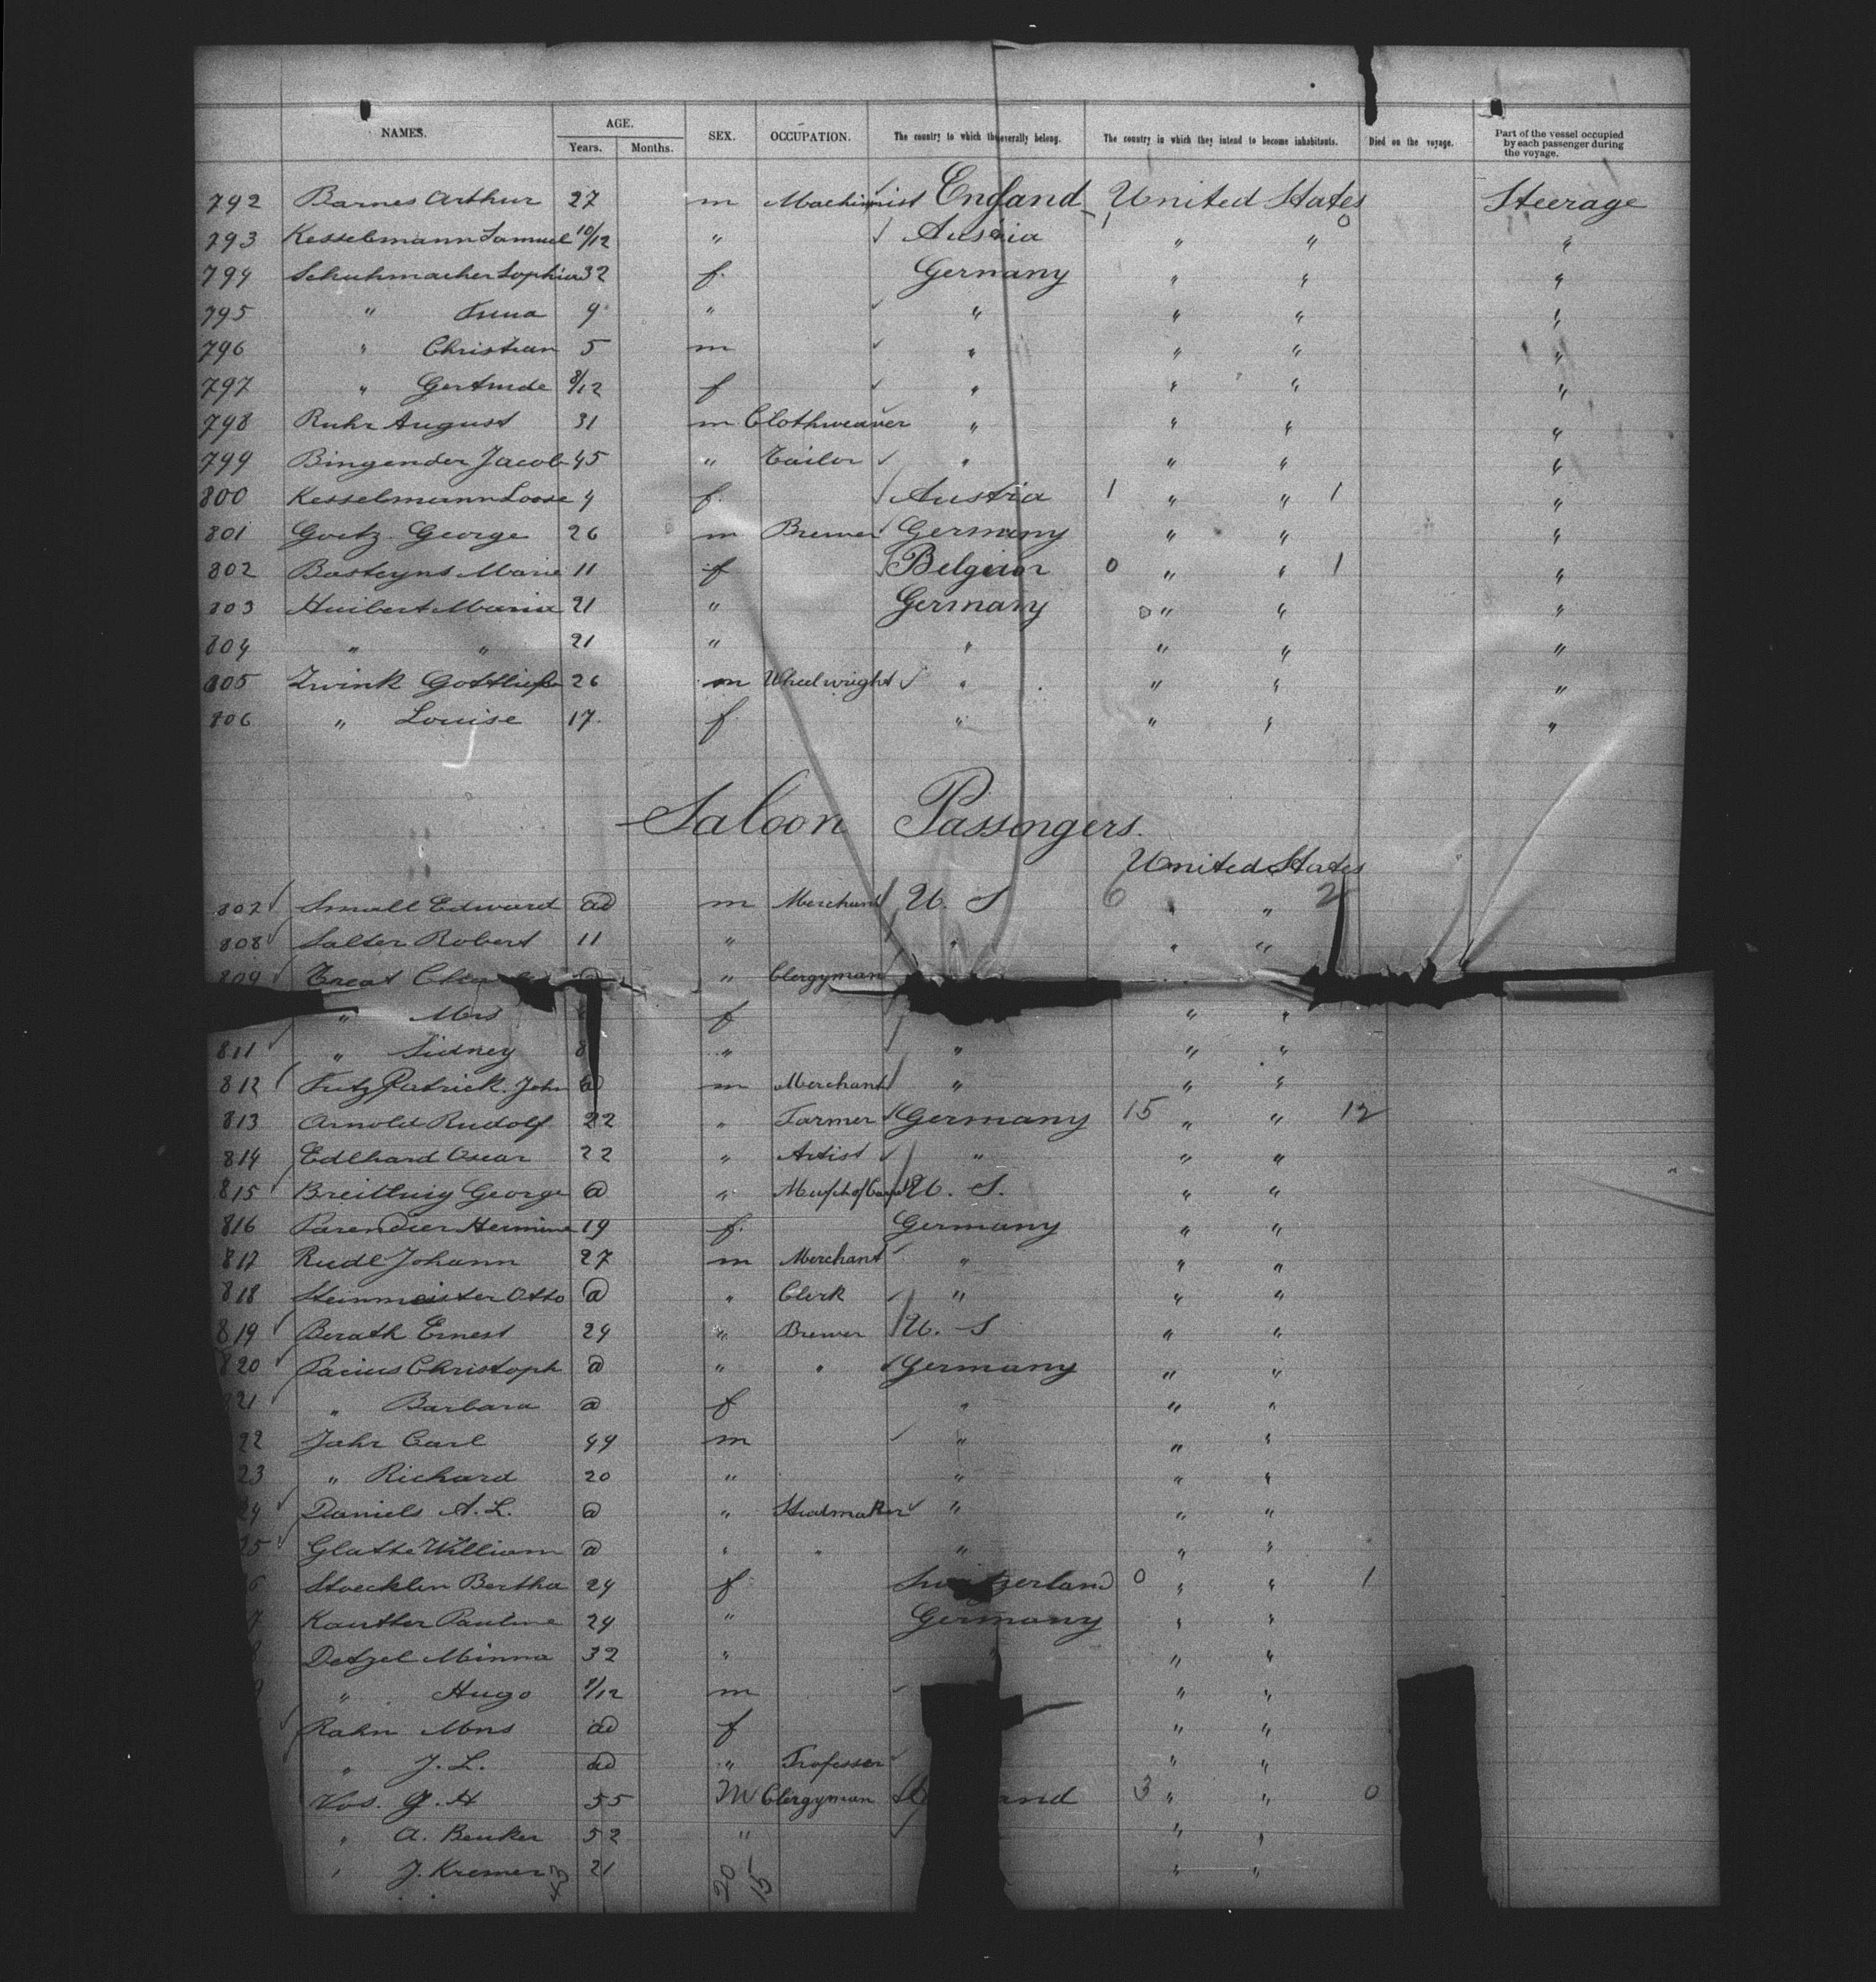 NAMES. AGE. Years. Months. SEX. OCCUPATION. The country to which they severally belong. The country in which they intend to become inhabitants. Died on the voyage. Part of the vessel occupied by each passenger during the voyage.
792 Barnes Arthur 27 m Machinist England United States Steerage
793 Kesselmann Samuel 10/12 " Austria " " "
794 Schuhmacher Sophia 32 f Germany " " "
795 " Anna 9 " " " " "
796 " Christian 5 m " " " "
797 " Gertrude 8/12 f " " " "
798 Ruhr August 31 m Clothweaver " " " "
799 Bingender Jacob 45 " Tailor " " " "
800 Kesselmann 4 f Austria 1 " " 1 "
801 Goetz George 26 m Brewer Germany " " "
802 Basteyns Marie 11 f Belgium 0 " " 1 "
803 Huibert Maria 21 " Germany 0 " " "
804 " " 21 " " " " "
805 Zwink Gottlieb 26 m Wheelwright " " " "
806 " Louise 17 f " " " "
Saloon Passengers.
United States
807 Small Edward ad m Merchant U. S 6 " " 2
808 Salter Robert 11 " " " "
809 Treat " Clergyman
" Mrs f " "
811 " Sidney 8 " " " "
812 Fitz Patrick. John m Merchant " " "
813 Arnold Rudolf 22 " Farmer Germany 15 " " 12
814 Edlhard Oscar 22 " Artist " " "
815 Breitung George @ " U. S. " "
816 Parendier Hermine 19 f. Germany " "
817 Rudl Johann 27 m Merchant " " "
818 Steinmeister Otto @ " Clerk " " "
819 Berath Ernest 24 " Brewer U. S " "
820 Pacius Christoph @ " " Germany " "
21 " Barbara @ f " " "
22 Jahr Carl 44 m " " "
23 " Richard 20 " " " "
24 Daniels A. L. @ " " " "
25 Glatte William @ " " " " "
6 Stoecklin Bertha 24 f Switzerland 0 " " 1
7 Kautter Pauline 24 " Germany " "
8 Detzel Minna 32 " " " "
" Hugo 9/12 m " "
Rahn Mrs ad f " "
" J. L. ad " Professor " "
Vos. G. H 55 M Clergyman and 3 " " 0
" A. Beuker 52 " " "
" J. Kremer 21 " "
43 20 15